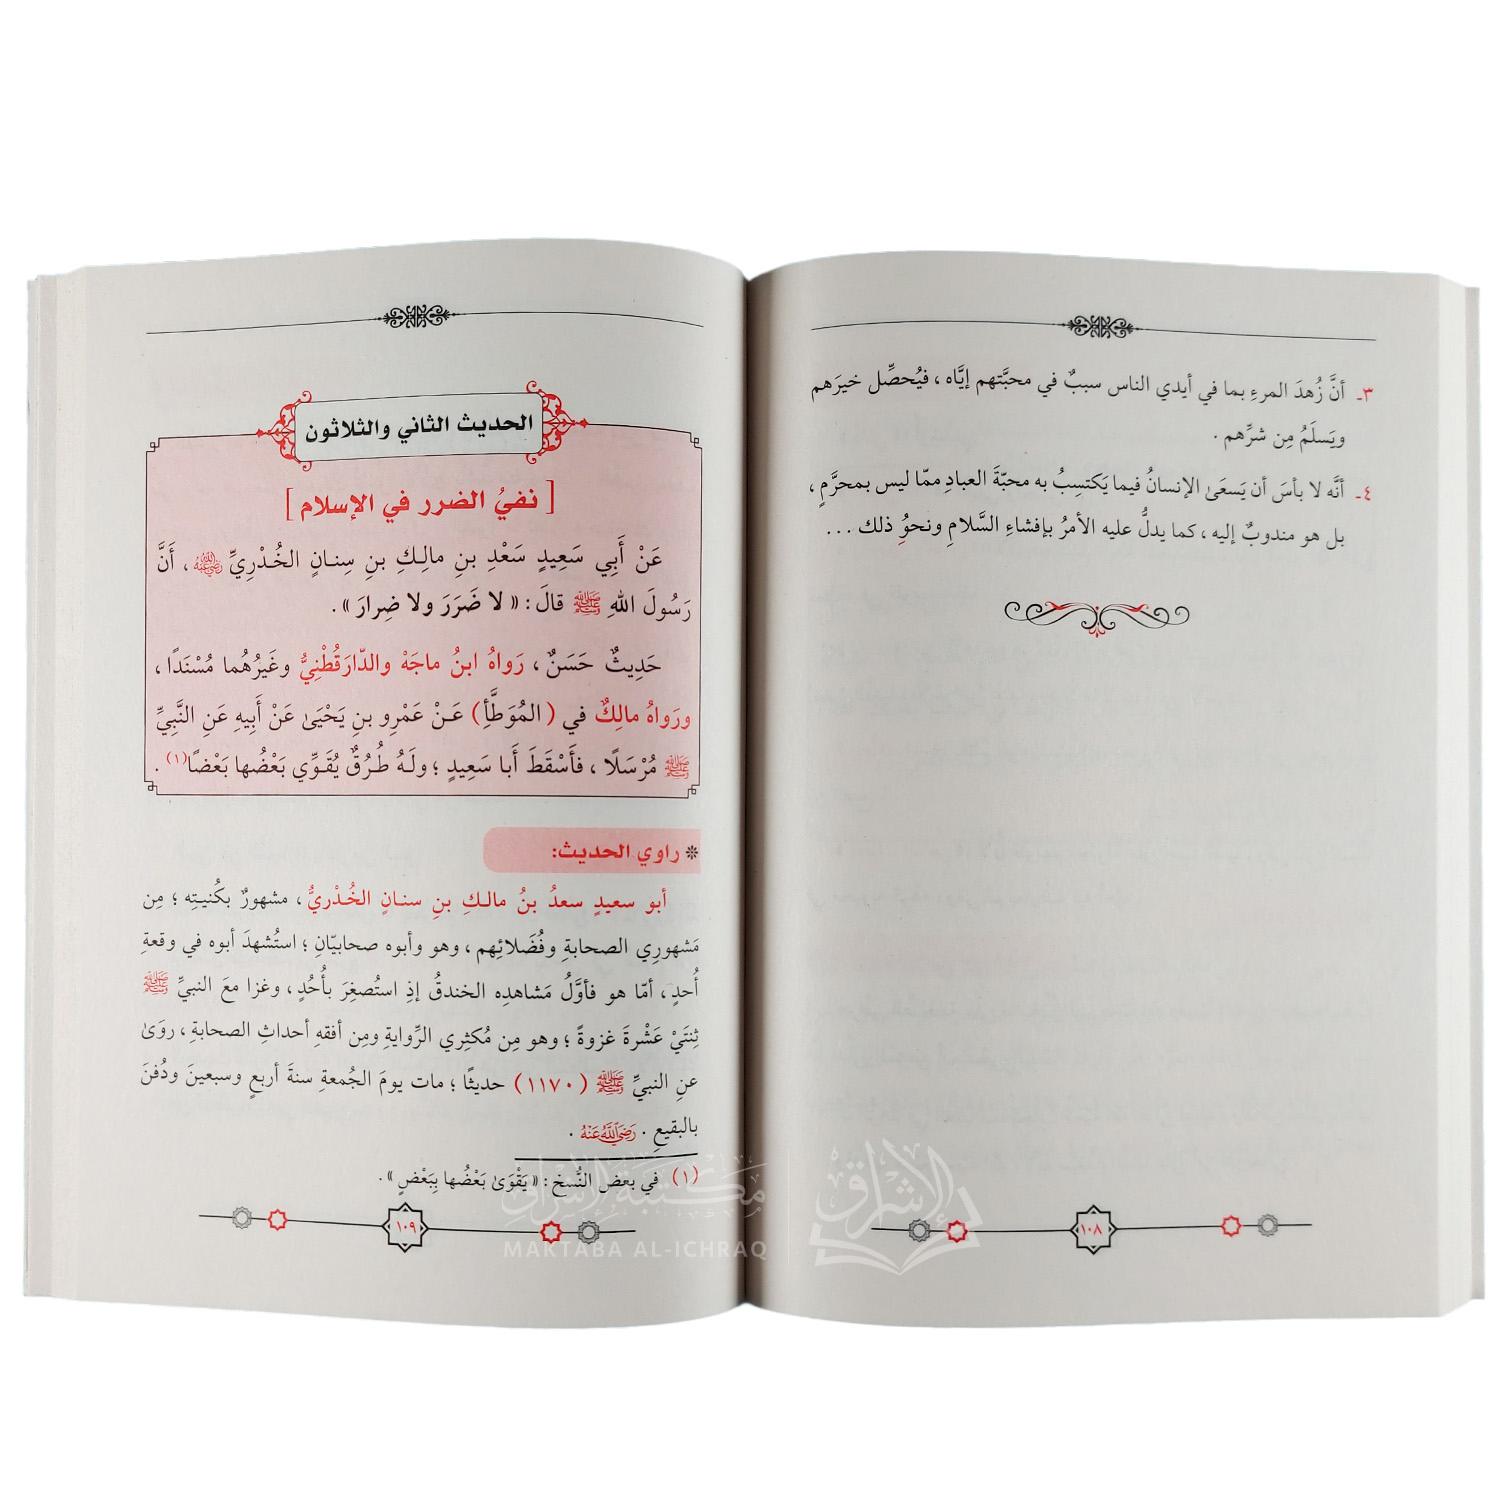 ٣ـ أنَّ زُهدَ المرءِ بما في أيدي الناس سببٌ في محبَّتهم إيَّاه ، فيُحصِّل خيرَهم
ويَسلَمُ مِن شرِّهم .
٤ـ أنَّه لا بأسَ أن يَسعَىٰ الإنسانُ فيما يَكتسِبُ به محبَّةَ العبادِ ممّا ليس بمحرَّمٍ ،
بل هو مندوبٌ إليه ، كما يدلُّ عليه الأمرُ بإفشاءِ السَّلامِ ونحوُ ذلك ...
١٠٨
الحديث الثاني والثلاثون
[ نفيُ الضرر في الإسلام ]
عَنْ أَبِي سَعِيدٍ سَعْدِ بنِ مالِكِ بنِ سِنانٍ الخُدْرِيِّ رضي الله عنه ، أَنَّ
رَسُولَ اللهِ ﷺ قالَ : « لا ضَرَرَ ولا ضِرارَ » .
حَدِيثٌ حَسَنٌ ، رَواهُ ابنُ ماجَهْ والدّارَقُطْنِيُّ وغَيرُهُما مُسْنَدًا ،
ورَواهُ مالِكٌ في ( المُوَطَّأِ ) عَنْ عَمْرِو بنِ يَحْيَىٰ عَنْ أَبِيهِ عَنِ النَّبِيِّ
ﷺ مُرْسَلًا ، فأَسْقَطَ أَبا سَعِيدٍ ؛ ولَهُ طُرُقٌ يُقَوِّي بَعْضُها بَعْضًا(١) .
* راوي الحديث:
أبو سعيدٍ سعدُ بنُ مالكِ بنِ سنانٍ الخُدْريُّ ، مشهورٌ بكُنيتِه ؛ مِن
مَشهورِي الصحابةِ وفُضَلائِهم ، وهو وأبوه صحابيّانِ ؛ استُشهدَ أبوه في وقعةِ
أُحدٍ ، أمّا هو فأوَّلُ مَشاهدِه الخندقُ إذِ استُصغِرَ بأُحُدٍ ، وغزا معَ النبيِّ ﷺ
ثِنتَيْ عَشْرةَ غزوةً ؛ وهو مِن مُكثِري الرِّوايةِ ومِن أفقهِ أحداثِ الصحابةِ ، روَىٰ
عنِ النبيِّ ﷺ ( ١١٧٠ ) حديثًا ؛ مات يومَ الجُمعةِ سنةَ أربعٍ وسبعينَ ودُفنَ
بالبقيعِ . رَضِيَ اللَّهُ عَنْهُ .
(١) في بعض النُّسخ : « يَقْوَىٰ بَعْضُها بِبَعْضٍ » .
١٠٩
مكتبة الإشراق
MAKTABA AL-ICHRAQ
الإشراق